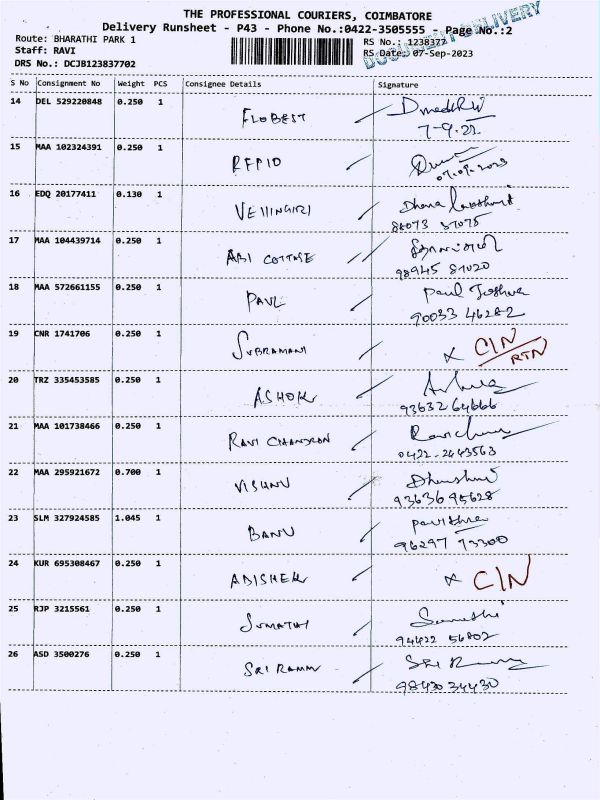 THE PROFESSIONAL COURIERS, COIMBATORE
Delivery Runsheet - P43 - Phone No.:0422-3505555 - Page No.:2
DOCUMENT DELIVERY
Route: BHARATHI PARK 1
RS No.: 1238377
Staff: RAVI
RS Date: 07-Sep-2023
DRS No.: DCJB123837702
S No Consignment No Weight PCS Consignee Details Signature
14 DEL 529220848 0.250 1 FLOBEST
7-9.22
15 MAA 102324391 0.250 1 RFPIO
07.09.2023
16 EDQ 20177411 0.130 1 VELLINGIRI Dhana Lakshmi
88073 87075
17 MAA 104439714 0.250 1 ABI COTTAGE
98945 87020
18 MAA 572661155 0.250 1 PAUL Paul Joshua
90033 46282
19 CNR 1741706 0.250 1 SUBRAMANI x CIN
RTN
20 TRZ 335453585 0.250 1 ASHOK
93632 64666
21 MAA 101738466 0.250 1 RAVI CHANDRON
0422-2443563
22 MAA 295921672 0.700 1 VISHNU
93636 95628
23 SLM 327924585 1.045 1 BANU Pavithra
96297 73300
24 KUR 695308467 0.250 1 ABISHEK x CIN
25 RJP 3215561 0.250 1 SUMATHI Sumathi
94422 56802
26 ASD 3500276 0.250 1 SRI RAMM
98430 34430